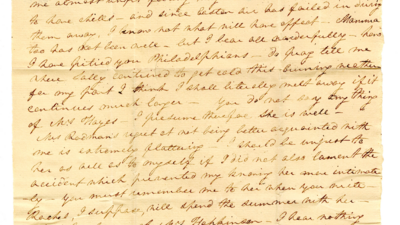 me almost
to have chills - and since Easton air has failed in driving
them away, I know not what will have effect - Mamma
too has not been well - but I bear all wonderfully - how
I have pitied you Philadelphians - do pray tell me
where Sally contrived to get cold this burning weather
for my part I think I shall literally melt away if it
continues much longer - You do not say any thing
of Mrs Hayes - I presume therefore she is well -
Mrs Redman's regret at not being better acquainted with
me is extremely flattering - I should be unjust to
her as well as to myself if I did not also lament the
accident which prevented my knowing her more intimate
ly - You must remember me to her when you write -
Rachel, I suppose, will spend the summer with her -
Mrs Hopkinson - I hear nothing